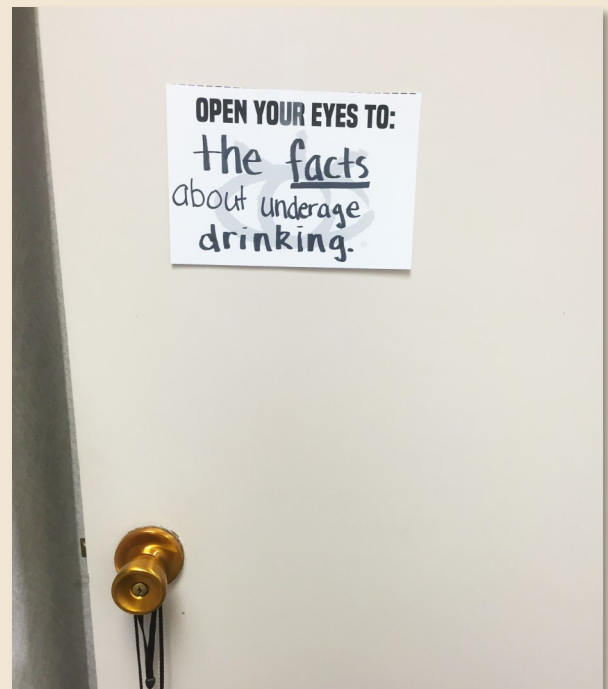 OPEN YOUR EYES TO:
the facts
about underage
drinking.